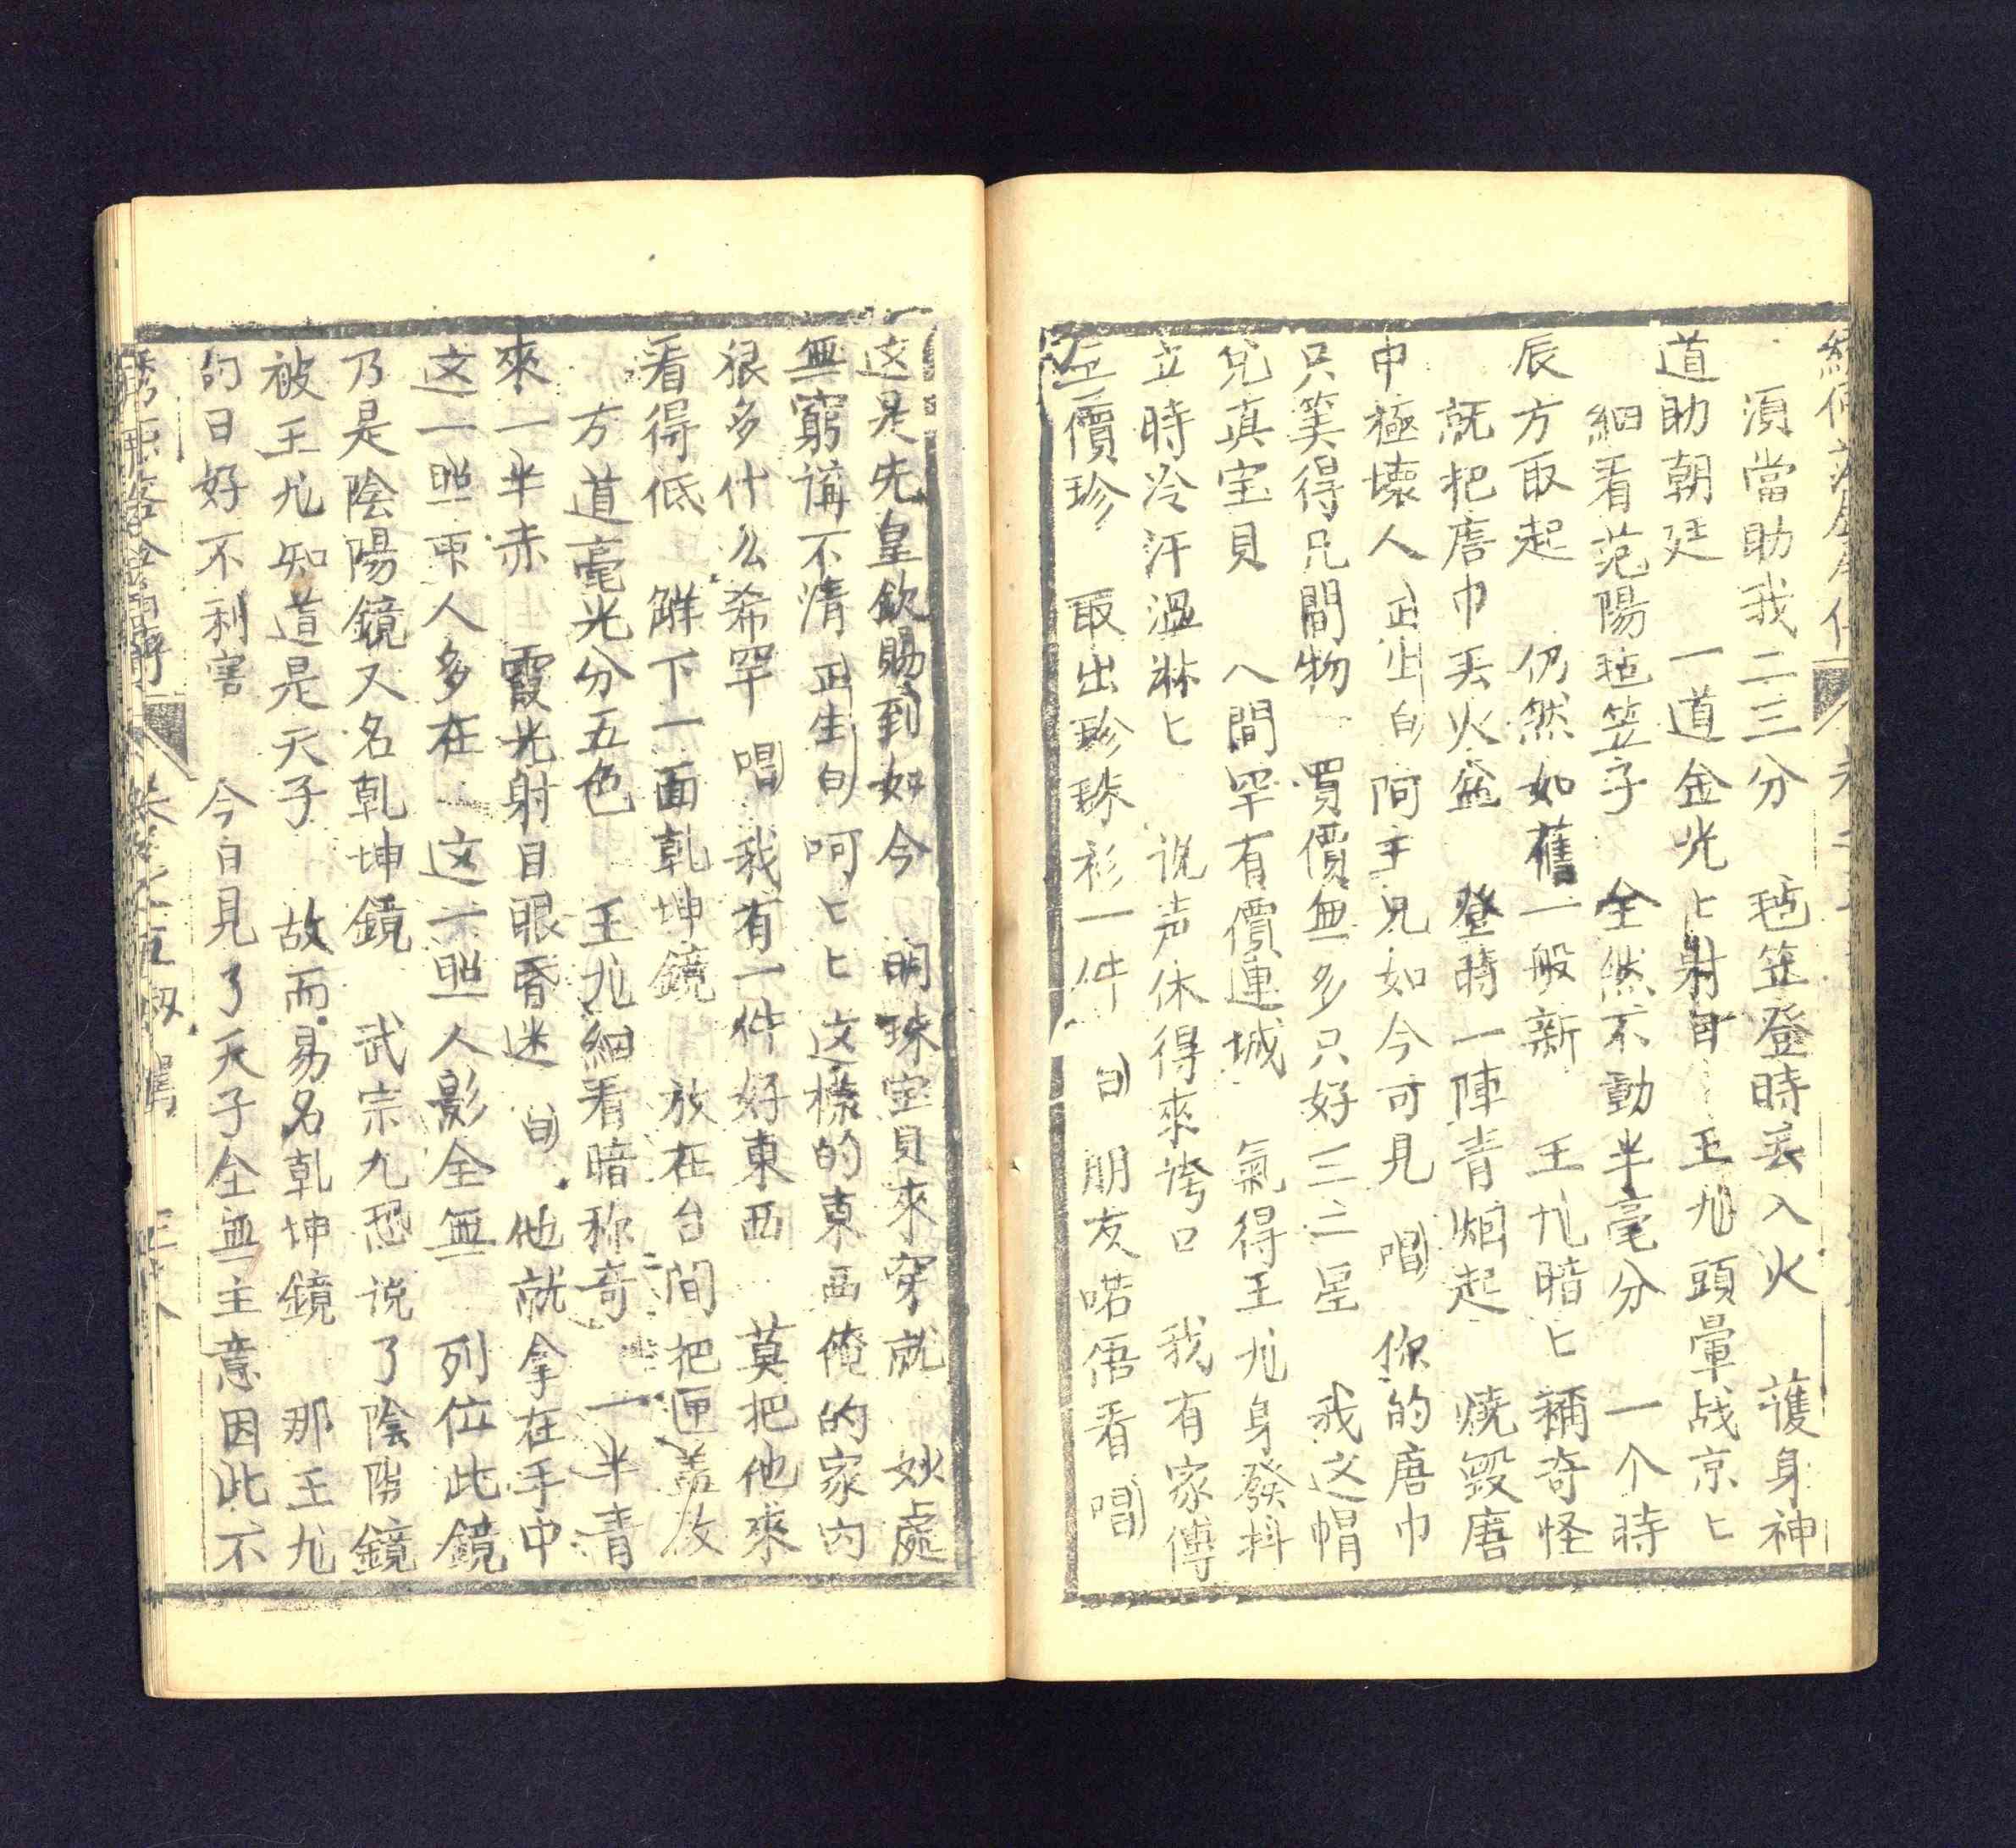 須當助我二三分　毡笠登時丟入火　護身神
道助朝廷　一道金光匕射目　王九頭暈战京匕
細看范陽毡笠子　全然不動半毫分　一个時
辰方取起　仍然如舊一般新　王九暗匕稱奇怪
就把唐巾丟火盆　登時一陣青烟起　燒毀唐
巾極壞人　正生白　阿王兄如今可見　唱　你的唐巾
只筭得凡間物　買價無多只好三二星　我这帽
兒真宝貝　人間罕有價連城　氣得王九身發抖
立時冷汗溫淋匕　说声休得來垮口　我有家傳
價珍　取出珍珠衫一件　白　朋友喏俉看　唱
这是先皇欽賜到如今　明珠宝貝來穿就　妙處
無窮講不清　正生白　呵匕匕这樣的東西俺的家内
狠多什么希罕　唱　我有一件好東西　莫把他來
看得低　解下一面乹坤鏡　放在台间把匣盖放
方道毫光分五色　王九細看暗称奇　一半青
來一半赤　霞光射目眼昏迷　白　他就拿在手中
这一照　人多在　这一照人影全無　列位此鏡
乃是陰陽鏡又名乹坤鏡　武宗九恐说了陰陽鏡
被王九知道是天子　故而易名乹坤鏡　那王九
的日好不利害　今日見了天子全無主意因此不